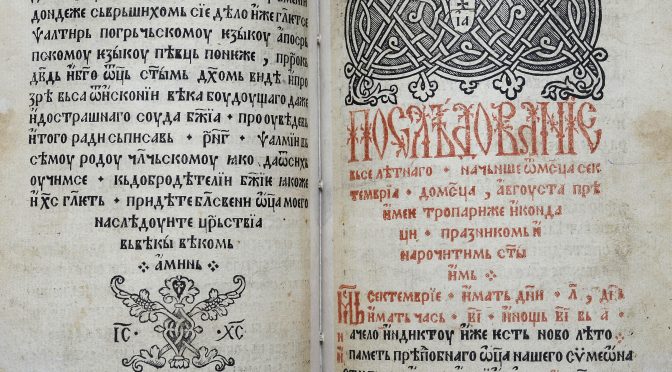 дондеже сьврьшихом сїе дѣло иже гл҃етсе
ѱалтирь погрьчьскому изыкоу апосрь
пскому изыкоу пѣвць пониже , пр҃рокь
дв҃дь иб҃го ѿц҃ь ст҃ымь дх҃омь видѣ ипро
зрѣ вьса
вѣка боудоущаго даже
идострашнаго соуда бж҃їа · проувѣдев
итого ради сьписавь · рн҃г · ѱалмїи в
семоу родоу чл҃чьскомоу ꙗко да
оучимсе · кьдобродѣтелїи бж҃їе ꙗкоже
и х҃с гл҃еть · прїидѣте бл҃свени ѿц҃а моего
наслѣдоуите цр҃ьствїа
вьвѣкы вѣкомь
аминь
І҃С Х҃С
І҃А
ПОСЛѢДОВАНІЕ
вьселѣтнаго · начьнше ѿмс҃ца сек
тембрїа · домс҃ца , аѵгоуста прѣ
имен тропариже иконда
ци · празникомь и
нарочитимь ст҃ы
имь
Мс҃ць сектемврїе · имать дн҃и · л҃ , дн҃ь
имать чась · в҃і · инощь в҃і
ачело індиктоу иже есть ново лѣто
паметь прѣп҃обнаго ѿц҃а нашего сѵмеѡна